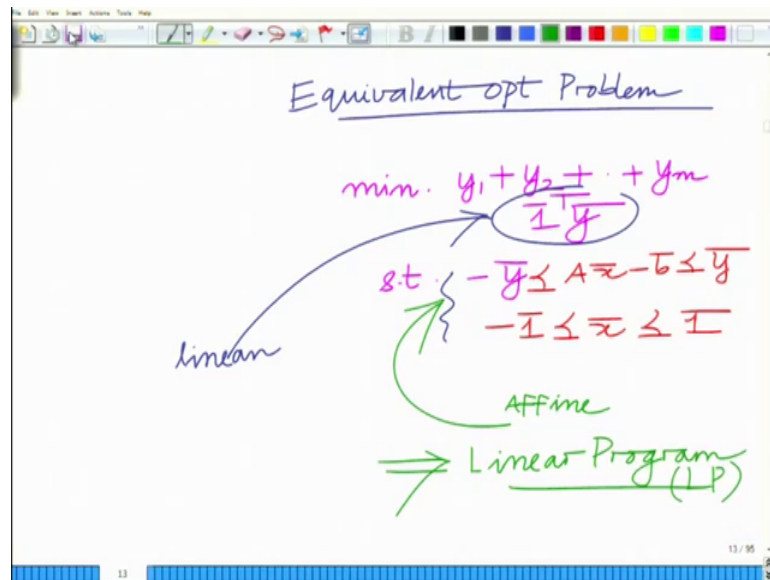 File Edit View Insert Actions Tools Help
B I
Equivalent opt Problem
min. y₁ + y₂ + · + yₘ
1̅ᵀy̅
s.t. -y̅ ≤ Ax̅ - b̅ ≤ y̅
-1̅ ≤ x̅ ≤ 1̅
linear
AFFine
⇒ Linear Program
(LP)
13 / 95
13